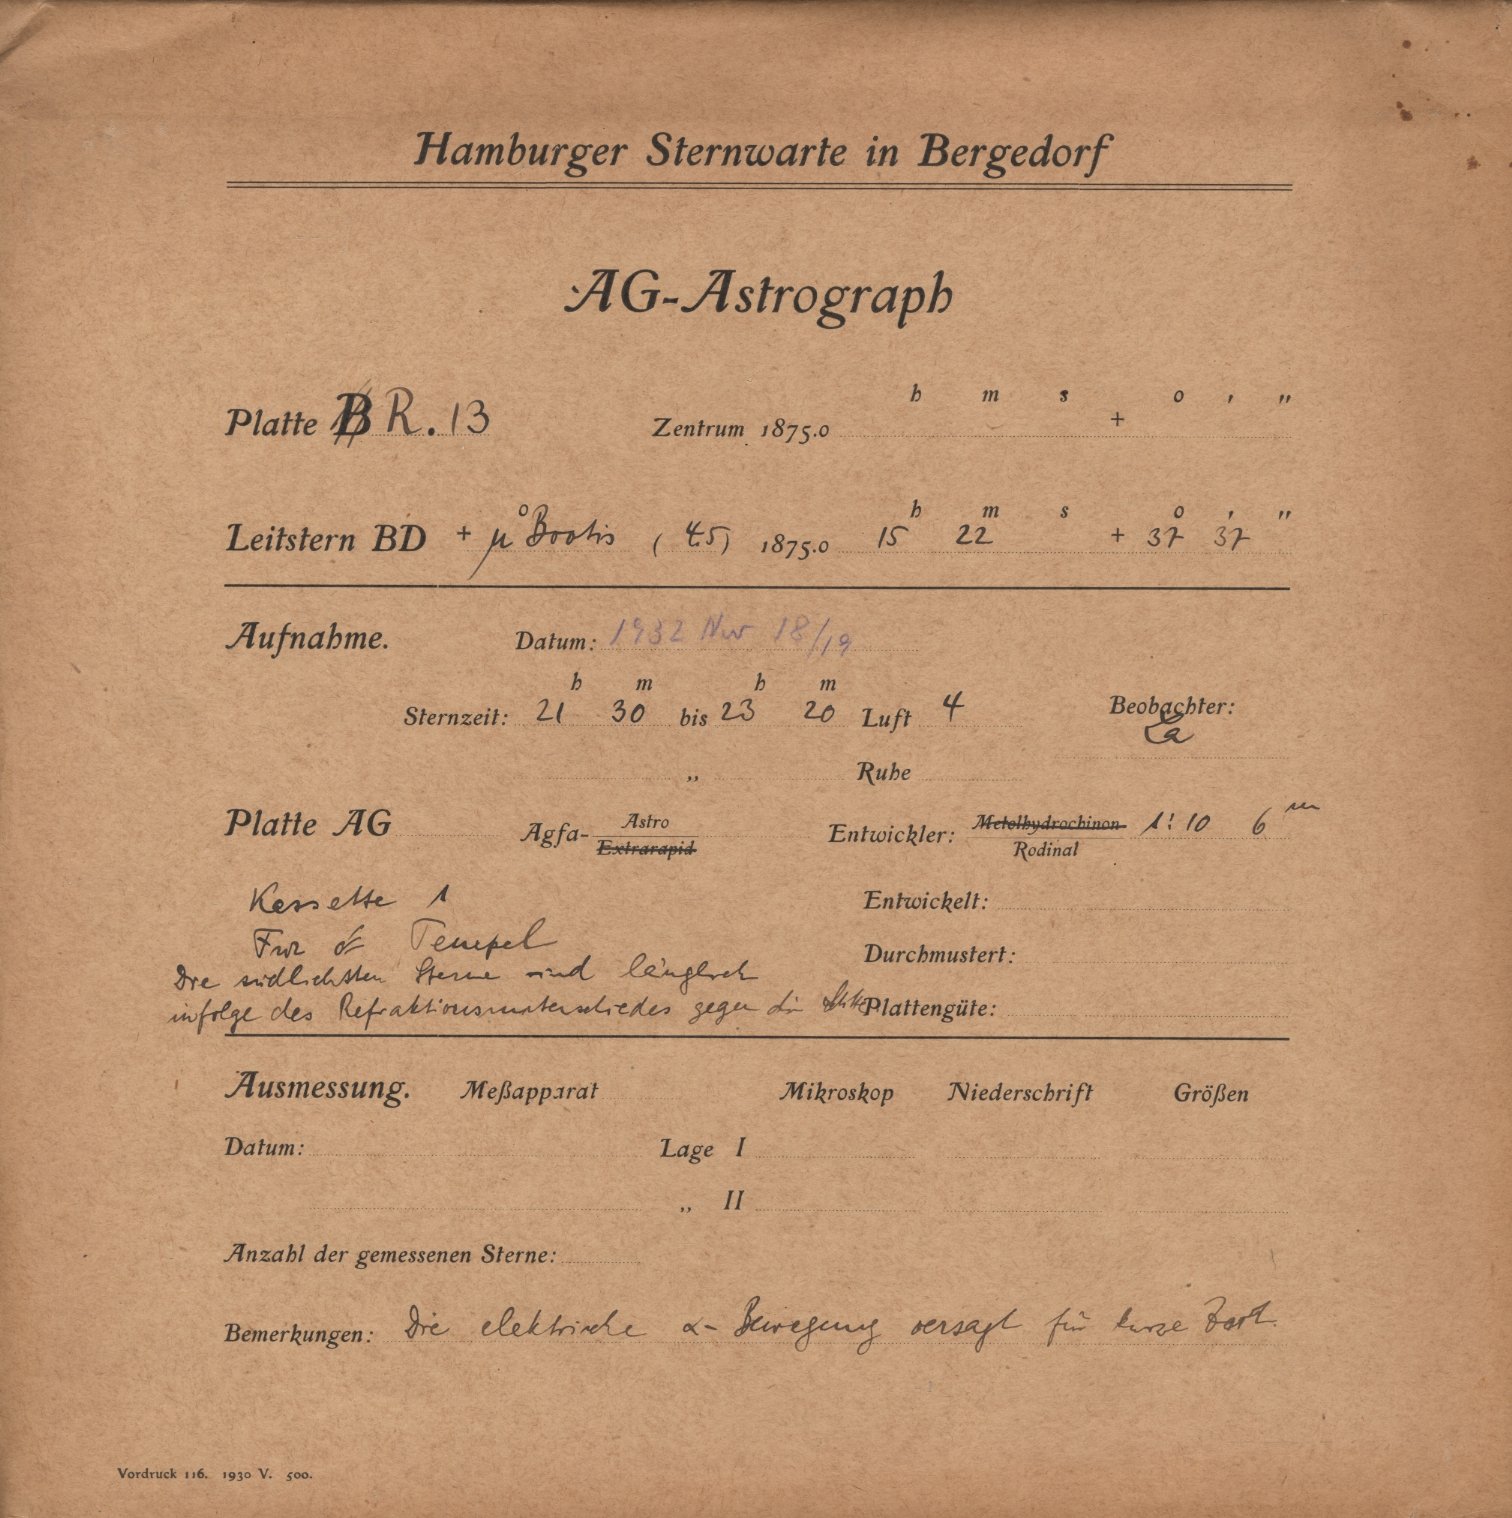 Hamburger Sternwarte in Bergedorf
AG-Astrograph
h m s o ' "
Platte B R. 13 Zentrum 1875.0 +
h m s o ' "
Leitstern BD + μ Bootis (4.5) 1875.0 15 22 + 37 37
Aufnahme. Datum: 1932 Nov 18/19
h m h m
Sternzeit: 21 30 bis 23 20 Luft 4 Beobachter:
La
" Ruhe
Platte AG Agfa- Astro Extrarapid Entwickler: Metolhydrochinon Rodinal 1:10 6 m
Kassette 1 Entwickelt:
Für Tempel Durchmustert:
Die südlichsten Sterne sind länglich
infolge des Refraktionsunterschiedes gegen die Plattengüte:
Ausmessung. Meßapparat Mikroskop Niederschrift Größen
Datum: Lage I
" II
Anzahl der gemessenen Sterne:
Bemerkungen: Die elektrische α-Bewegung versagt für kurze Zeit.
Vordruck 116. 1930 V. 500.